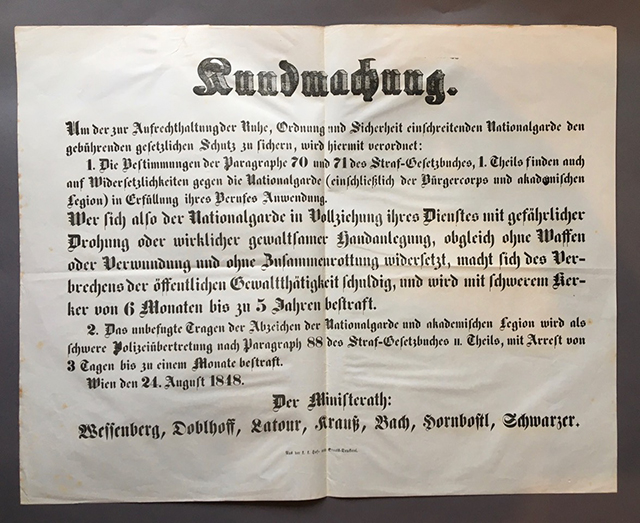 Kundmachung.
Um der zur Aufrechthaltung der Ruhe, Ordnung und Sicherheit einschreitenden Nationalgarde den
gebührenden gesetzlichen Schutz zu sichern, wird hiermit verordnet:
1. Die Bestimmungen der Paragraphe 70 und 71 des Straf-Gesetzbuches, 1. Theils finden auch
auf Widersetzlichkeiten gegen die Nationalgarde (einschließlich der Bürgercorps und akademischen
Legion) in Erfüllung ihres Berufes Anwendung.
Wer sich also der Nationalgarde in Vollziehung ihres Dienstes mit gefährlicher
Drohung oder wirklicher gewaltsamer Handanlegung, obgleich ohne Waffen
oder Verwundung und ohne Zusammenrottung widersetzt, macht sich des Ver-
brechens der öffentlichen Gewaltthätigkeit schuldig, und wird mit schwerem Ker-
ker von 6 Monaten bis zu 5 Jahren bestraft.
2. Das unbefugte Tragen der Abzeichen der Nationalgarde und akademischen Legion wird als
schwere Polizeiübertretung nach Paragraph 88 des Straf-Gesetzbuches II. Theils, mit Arrest von
3 Tagen bis zu einem Monate bestraft.
Wien den 24. August 1848.
Der Ministerath:
Wessenberg, Doblhoff, Latour, Krauß, Bach, Hornbostl, Schwarzer.
Aus der k. k. Hof- und Staats-Druckerei.